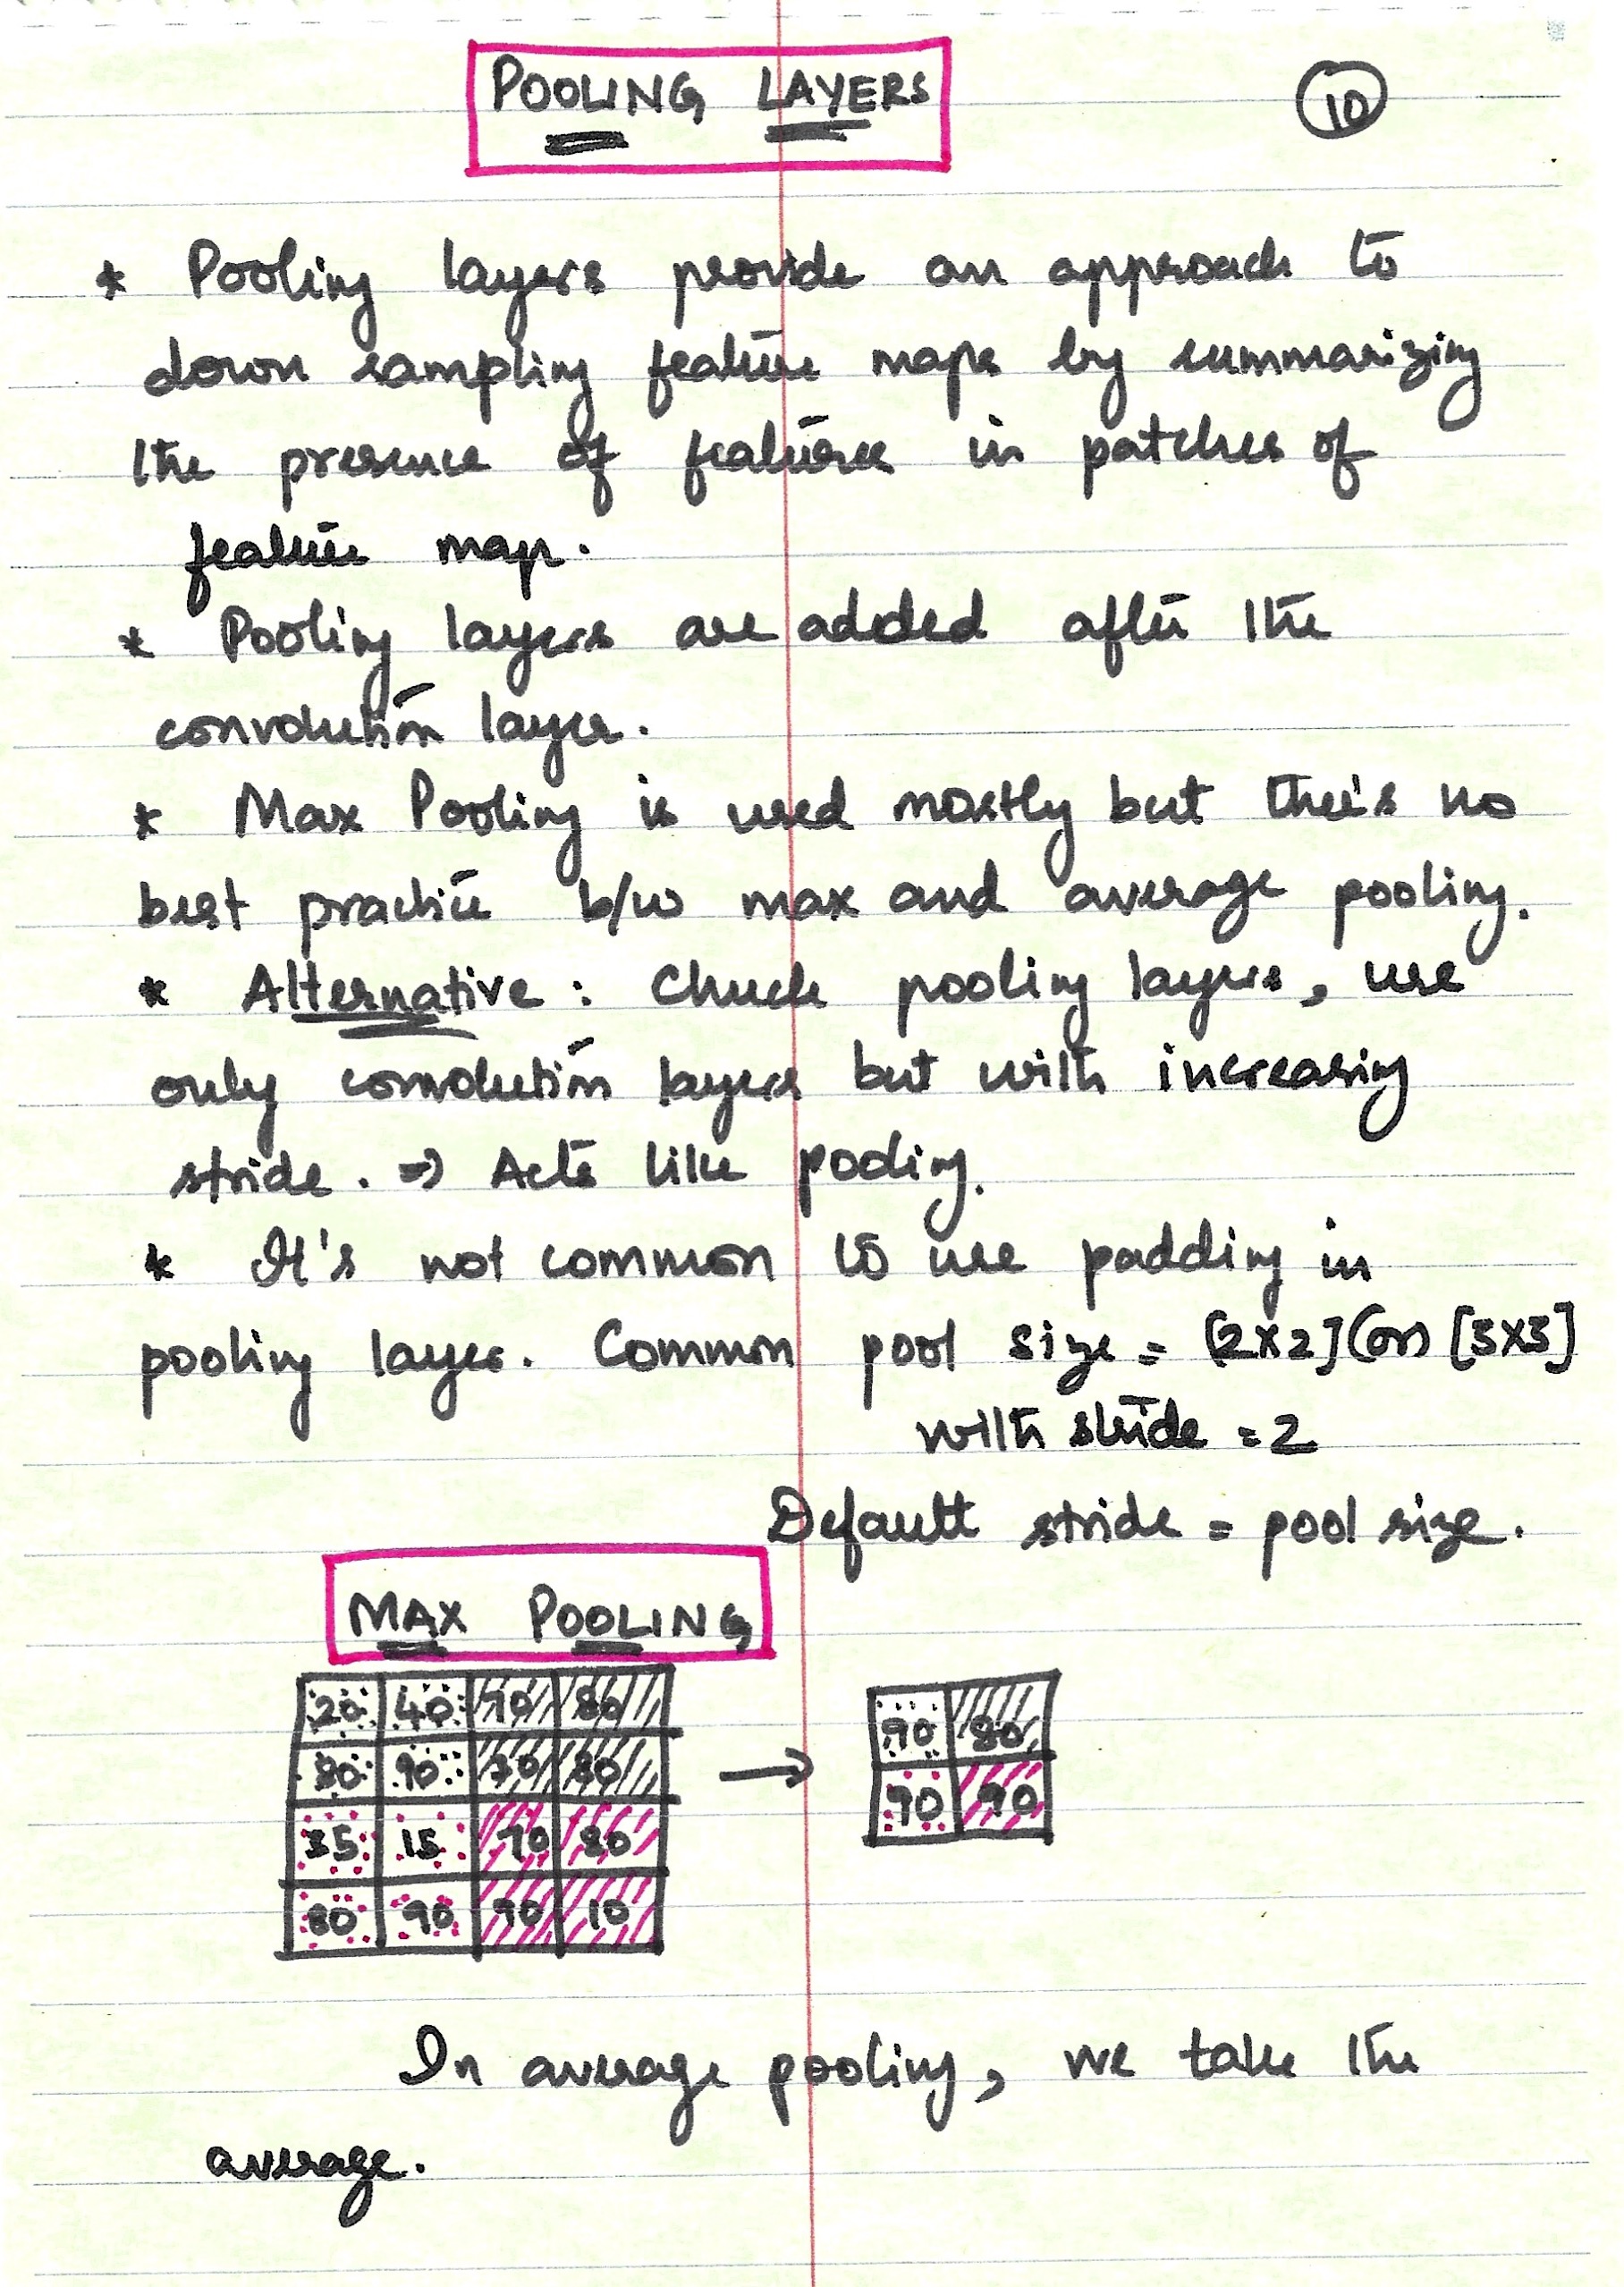 POOLING LAYERS
10
* Pooling layers provide an approach to
down sampling feature maps by summarizing
the presence of features in patches of
feature map.
* Pooling layers are added after the
convolution layer.
* Max Pooling is used mostly but there's no
best practice b/w max and average pooling.
* Alternative : Chuck pooling layers, use
only convolution layers but with increasing
stride. => Acts like pooling.
* It's not common to use padding in
pooling layer. Common pool size = [2x2] (or) [3x3]
with stride = 2
Default stride = pool size.
MAX POOLING
20 40 70 80
80 90 70 80
90 80
35 15 70 80
90 90
80 90 90 10
In average pooling, we take the
average.